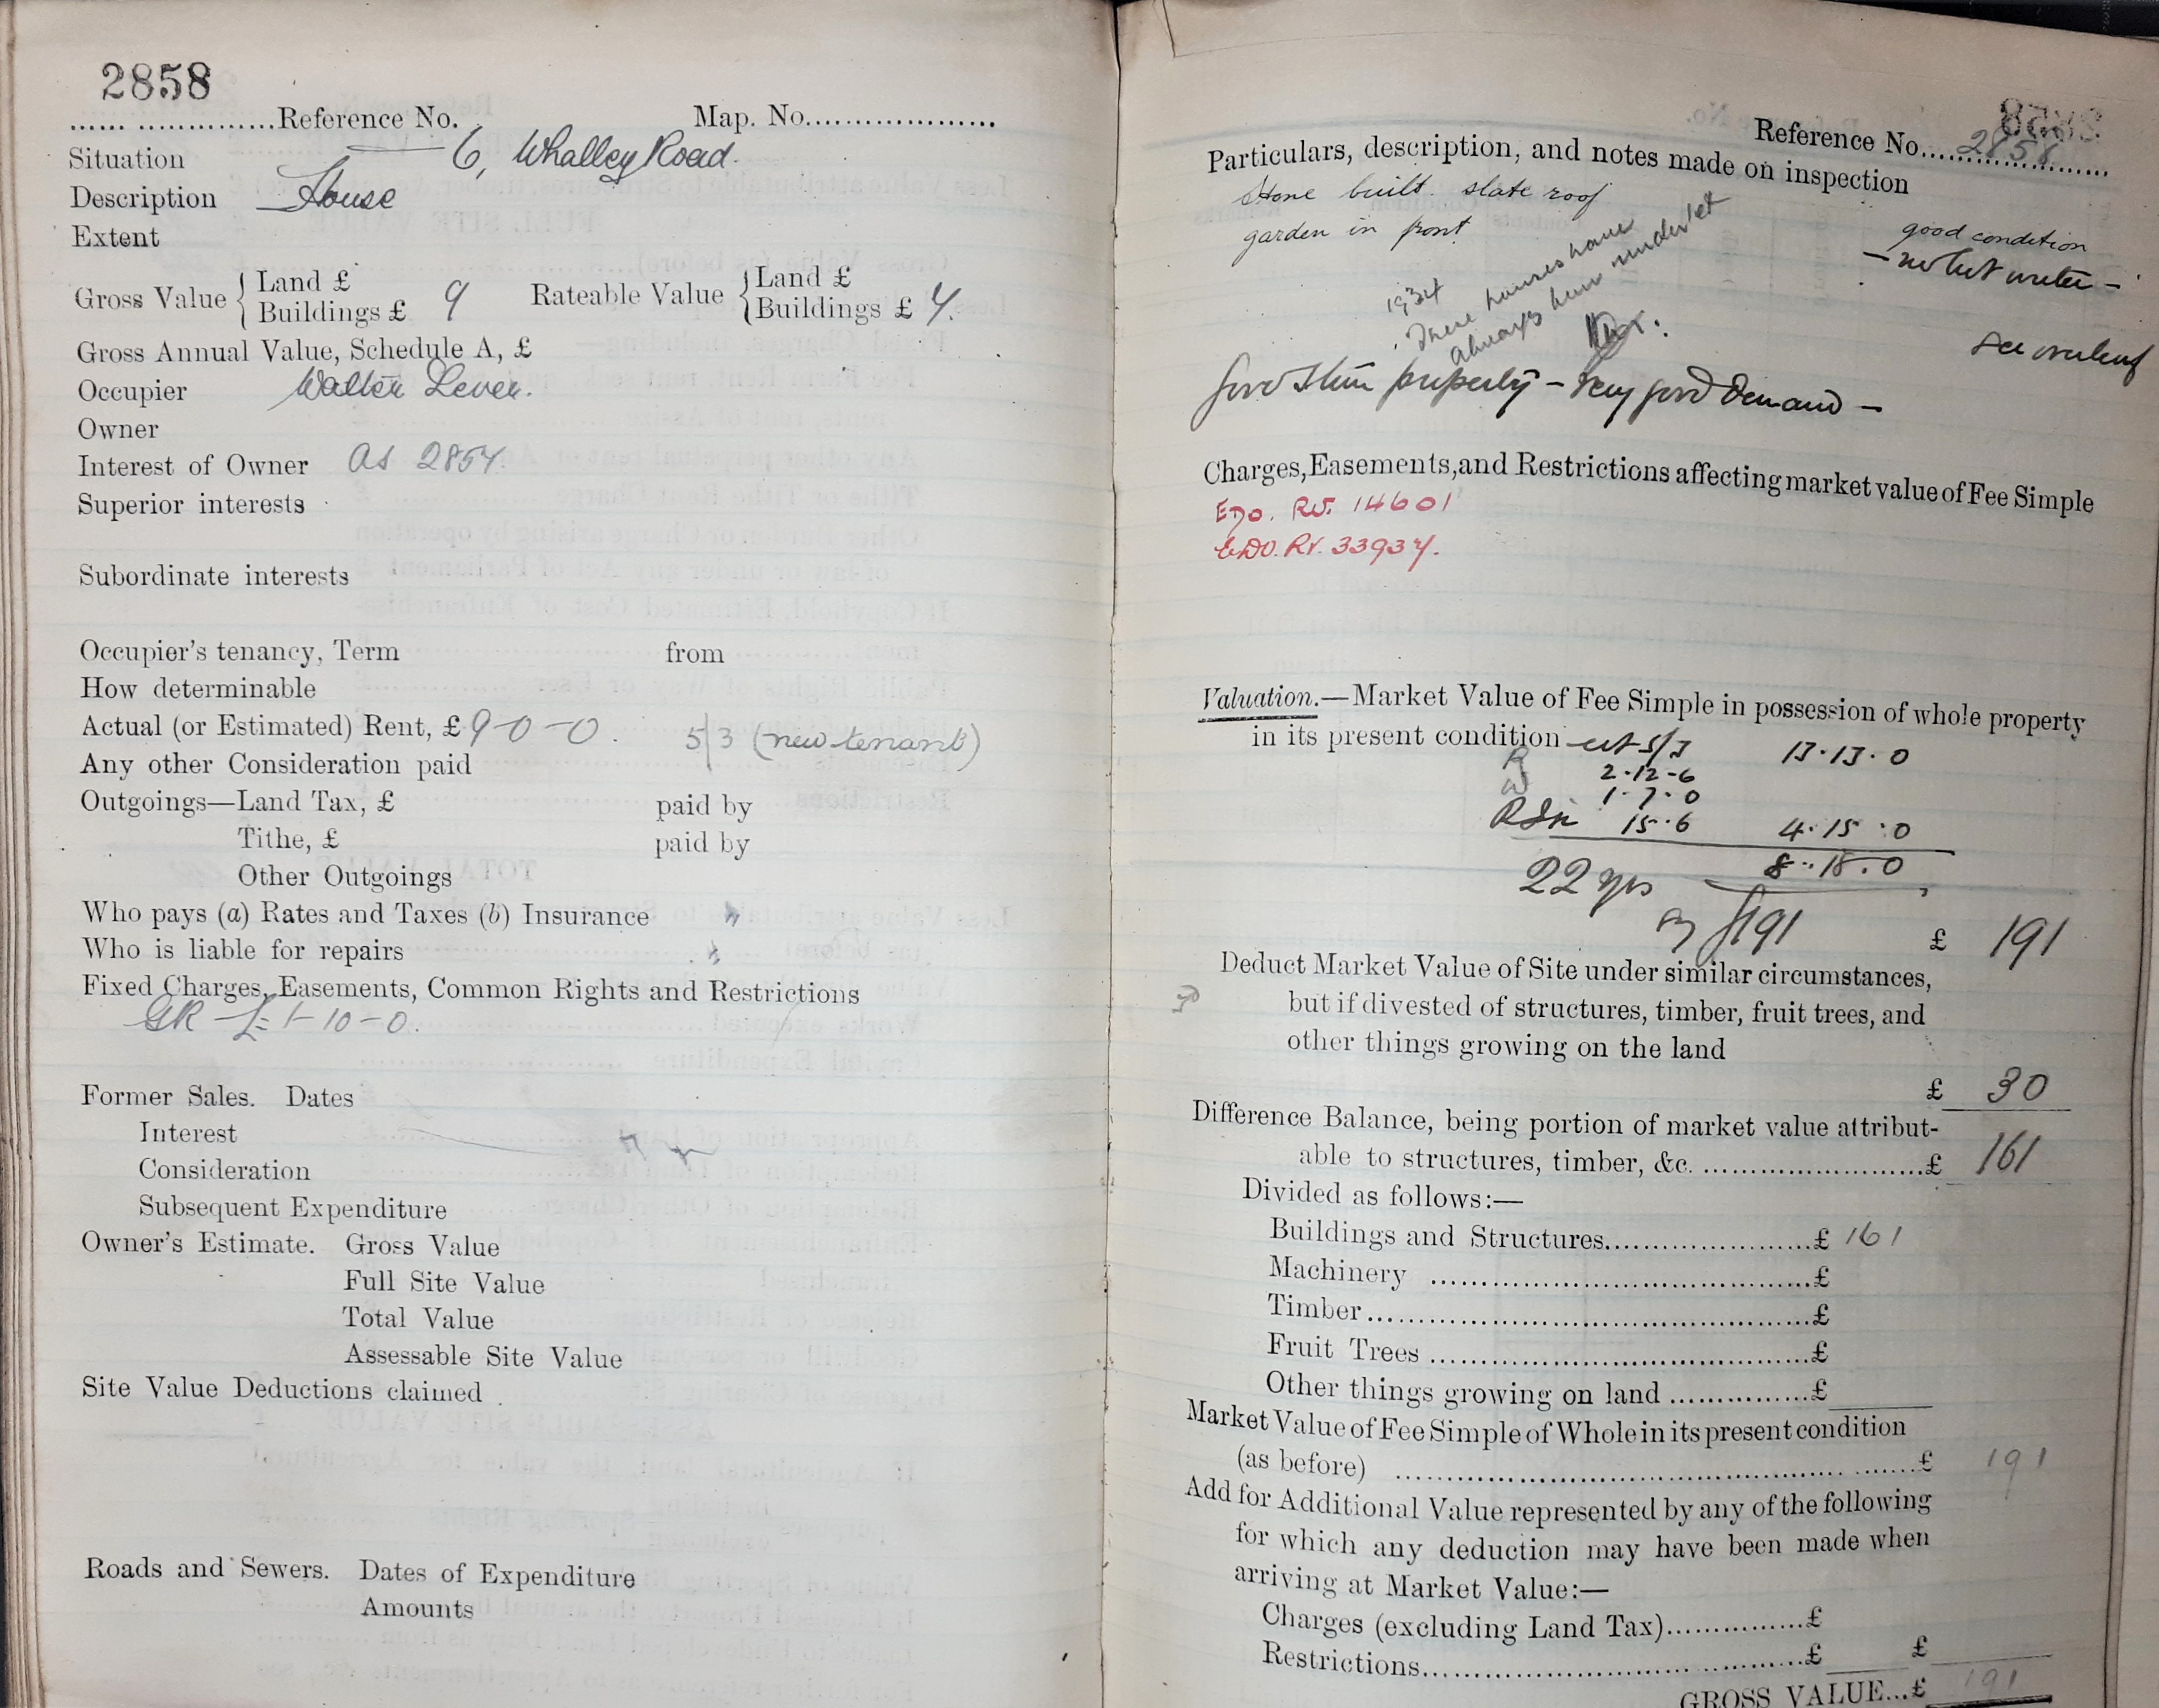 2858
Reference No. Map. No.
Situation 6, Whalley Road.
Description House
Extent
Gross Value { Land £ Rateable Value { Land £
Buildings £ 9 Buildings £ 4.
Gross Annual Value, Schedule A, £
Occupier Walter Lever.
Owner
Interest of Owner as 2854.
Superior interests
Subordinate interests
Occupier's tenancy, Term from
How determinable
Actual (or Estimated) Rent, £ 9-0-0. 5/3 (new tenant)
Any other Consideration paid
Outgoings—Land Tax, £ paid by
Tithe, £ paid by
Other Outgoings
Who pays (a) Rates and Taxes (b) Insurance "
Who is liable for repairs "
Fixed Charges, Easements, Common Rights and Restrictions
GR - £1-10-0.
Former Sales. Dates
Interest
Consideration
Subsequent Expenditure
Owner's Estimate. Gross Value
Full Site Value
Total Value
Assessable Site Value
Site Value Deductions claimed
Roads and Sewers. Dates of Expenditure
Amounts
Reference No. 2858
Particulars, description, and notes made on inspection
Stone built slate roof
garden in front
good condition
- no hot water -
1934
These houses have
always been underlet
see overleaf
property - very good demand -
Charges, Easements, and Restrictions affecting market value of Fee Simple
EDO. RV. 14601
EDO. RV. 33934.
Valuation.—Market Value of Fee Simple in possession of whole property
in its present condition 5/3 13.13.0
R 2-12-6
W 1.7.0
15.6 4.15.0
8.18.0
22 yrs
£191
£ 191
Deduct Market Value of Site under similar circumstances,
but if divested of structures, timber, fruit trees, and
other things growing on the land
£ 30
Difference Balance, being portion of market value attribut-
able to structures, timber, &c. £ 161
Divided as follows:—
Buildings and Structures £ 161
Machinery £
Timber £
Fruit Trees £
Other things growing on land £
Market Value of Fee Simple of Whole in its present condition
(as before) £ 191
Add for Additional Value represented by any of the following
for which any deduction may have been made when
arriving at Market Value:—
Charges (excluding Land Tax) £
Restrictions £ £
GROSS VALUE...£ 191